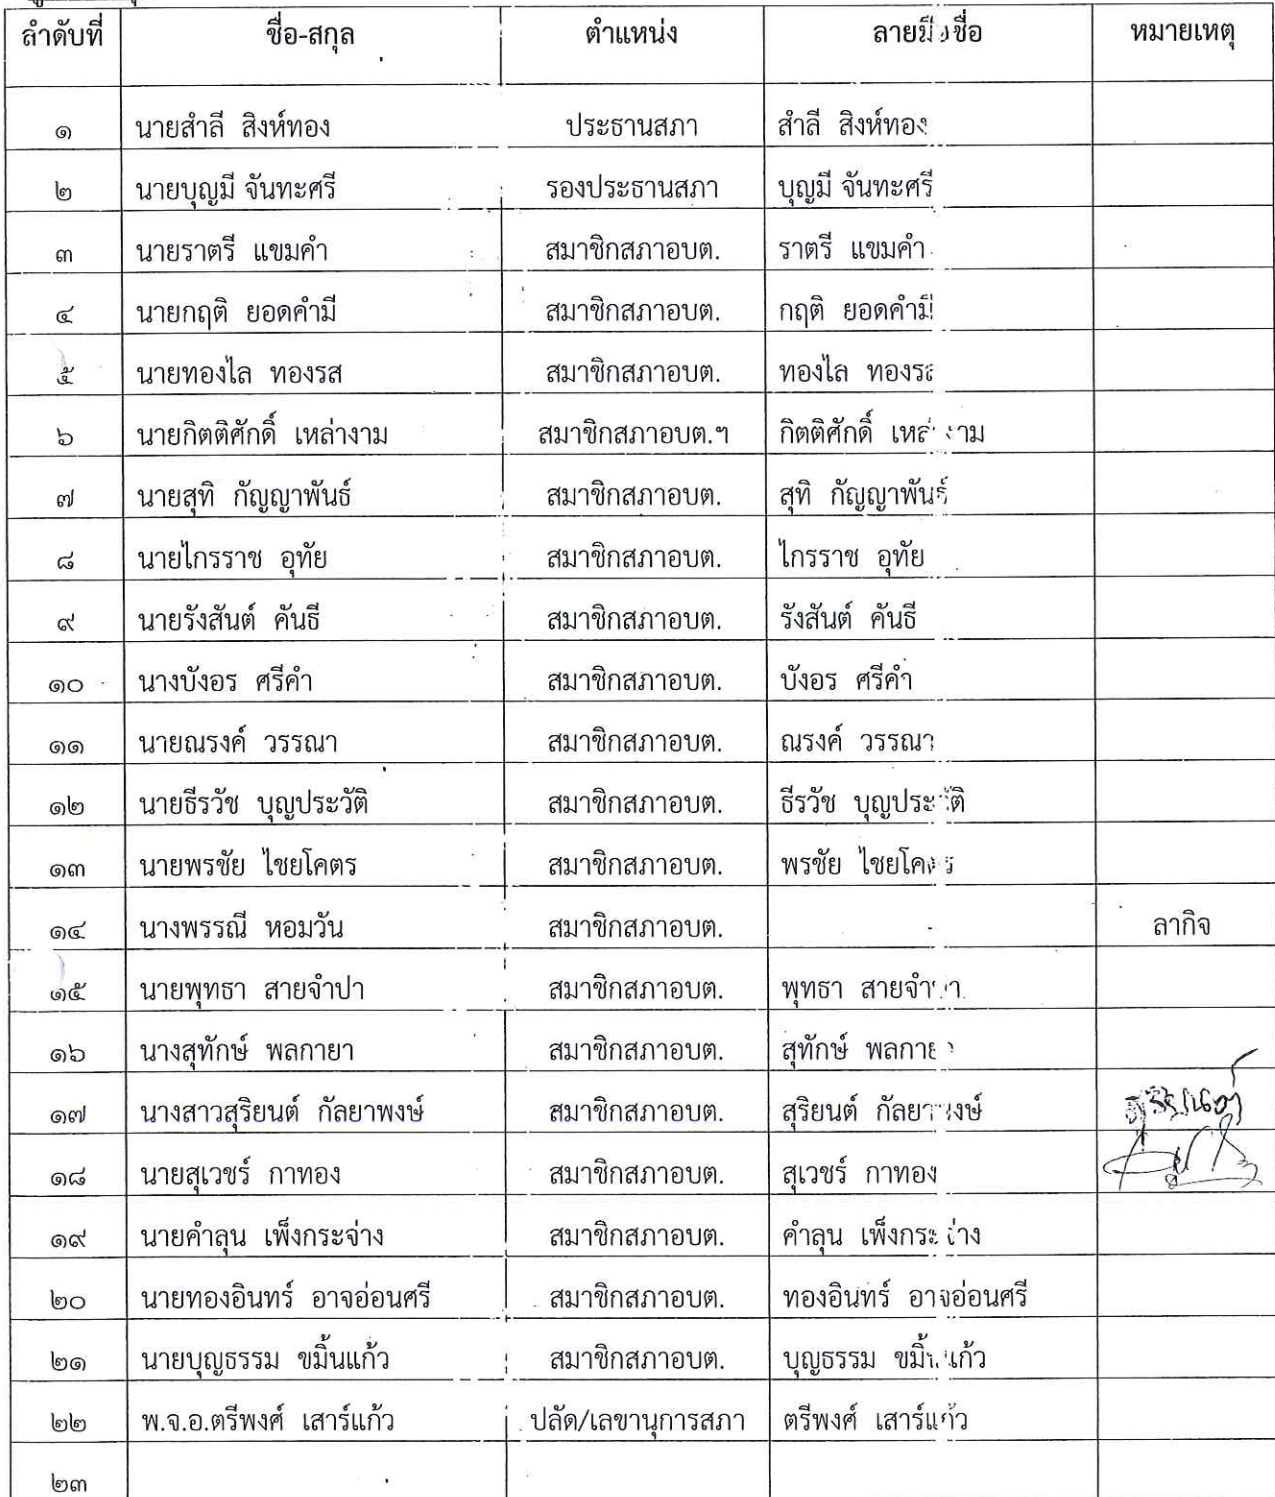 ลำดับที่ ชื่อ-สกุล ตำแหน่ง ลายมือชื่อ หมายเหตุ
๑ นายสำลี สิงห์ทอง ประธานสภา สำลี สิงห์ทอง
๒ นายบุญมี จันทะศรี รองประธานสภา บุญมี จันทะศรี
๓ นายราตรี แขมคำ สมาชิกสภาอบต. ราตรี แขมคำ
๔ นายกฤติ ยอดคำมี สมาชิกสภาอบต. กฤติ ยอดคำมี
๕ นายทองไล ทองรส สมาชิกสภาอบต. ทองไล ทองรส
๖ นายกิตติศักดิ์ เหล่างาม สมาชิกสภาอบต.ฯ กิตติศักดิ์ เหล่างาม
๗ นายสุทิ กัญญาพันธ์ สมาชิกสภาอบต. สุทิ กัญญาพันธ์
๘ นายไกรราช อุทัย สมาชิกสภาอบต. ไกรราช อุทัย
๙ นายรังสันต์ คันธี สมาชิกสภาอบต. รังสันต์ คันธี
๑๐ นางบังอร ศรีคำ สมาชิกสภาอบต. บังอร ศรีคำ
๑๑ นายณรงค์ วรรณา สมาชิกสภาอบต. ณรงค์ วรรณา
๑๒ นายธีรวัช บุญประวัติ สมาชิกสภาอบต. ธีรวัช บุญประวัติ
๑๓ นายพรชัย ไชยโคตร สมาชิกสภาอบต. พรชัย ไชยโคตร
๑๔ นางพรรณี หอมวัน สมาชิกสภาอบต. ลากิจ
๑๕ นายพุทธา สายจำปา สมาชิกสภาอบต. พุทธา สายจำปา
๑๖ นางสุทักษ์ พลกายา สมาชิกสภาอบต. สุทักษ์ พลกายา
๑๗ นางสาวสุริยนต์ กัลยาพงษ์ สมาชิกสภาอบต. สุริยนต์ กัลยาพงษ์
๑๘ นายสุเวชร์ กาทอง สมาชิกสภาอบต. สุเวชร์ กาทอง
๑๙ นายคำลุน เพ็งกระจ่าง สมาชิกสภาอบต. คำลุน เพ็งกระจ่าง
๒๐ นายทองอินทร์ อาจอ่อนศรี สมาชิกสภาอบต. ทองอินทร์ อาจอ่อนศรี
๒๑ นายบุญธรรม ขมิ้นแก้ว สมาชิกสภาอบต. บุญธรรม ขมิ้นแก้ว
๒๒ พ.จ.อ.ตรีพงศ์ เสาร์แก้ว ปลัด/เลขานุการสภา ตรีพงศ์ เสาร์แก้ว
๒๓